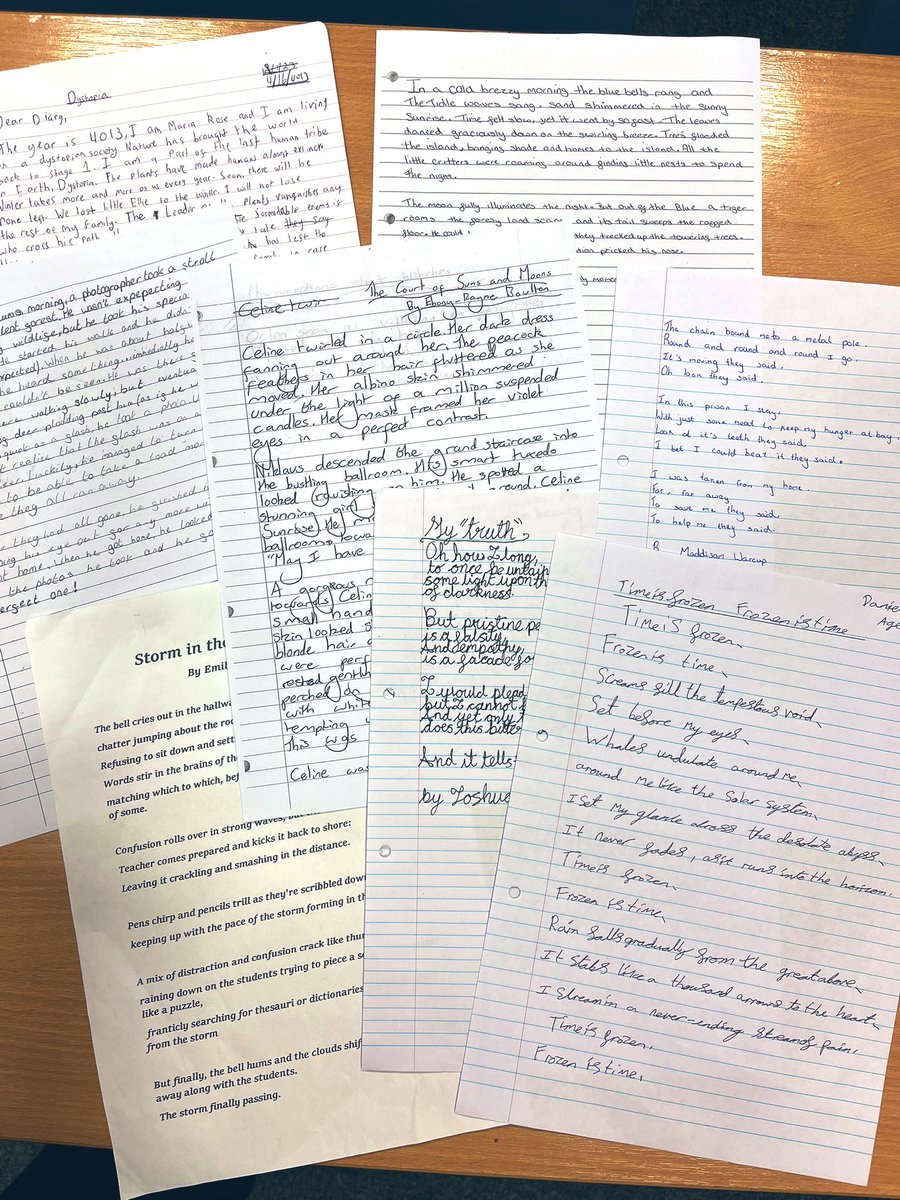 Dystopia
4/16/4013
Dear Diary,
The year is 4013, I am Maria Rose and I am living
in a dystopian society. Nature has brought the world
back to stage 1. I am a Part of the last human tribe
on Earth, Dystopia. The plants have made humans almost extinct
Winter takes more and more of us every year. Soon there will be
none left. We lost little Ellie to the winter. I will not lose
the rest of my family. The Leader
Plants vanquishes any
who cross his Path
formidable enemy is
tale they say
he has lost the
family in case
In a cold breezy morning the blue bells rang and
The Tidle waves sang. sand shimmered in the sunny
Sunrise. Time felt slow, yet it went by so fast. The leaves
danced graciously down on the swirling breeze. Trees flooded
the island, bringing shade and homes to the island. All the
little critters were roaming around finding little nests to spend
the night.
The moon fully illuminates the night. But out of the Blue a tiger
roams the forest land scape and its tail sweeps the ragged
floor. He could
they trecked up the towering trees.
pricked his nose.
morning, a photographer took a stroll
forest. He wasn't expepecting
wildlife, but he took his special
expected). When he was about halfway
he heard something. immediatly he
couldn't be seen. He was there
were walking slowly, but eventual
deer plodding past him (as if he w
quick as a flash, he took a photo
realise that the flash was on
Luckily, he managed to turn
to be able to take a load more
they all ran away.
they had all gone, he finished h
his eye out for any more w
home. When he got home, he looked
the photos he took and he go
perfect one!
Celine twir
The Court of Suns and Moons
By Ebony-Rayne Boulton
Celine twirled in a circle. Her dark dress
fanning out around her. The peacock
feathers in her hair fluttered as she
moved. Her albino skin shimmered
under the light of a million suspended
candles. Her mask framed her violet
eyes in a perfect contrast.
Niklaus descended the grand staircase into
the bustling ballroom. His smart tuxedo
looked rquishing on him. He spotted a
stunning girl
round. Celine
Sunrose. He m
ballroom, towa
"May I have
A gorgeous m
towards Celin
small hand
skin looked s
blonde hair c
were perf
rested gentl
perched on
with whit
tempting
This was
Celine was
The chain bound me to a metal pole.
Round and round and round I go.
It's moving they said.
Oh look they said.
In this prison I stay,
With just some meat to keep my hunger at bay,
Look at it's teeth they said,
I bet I could beat it they said.
I was taken from my home.
Far, far away
To save me they said,
To help me they said.
Maddison Warcup
My "truth",
Oh how I long,
to once be untain
some light upon th
of darkness.
But pristine pe
is a falsity,
And empathy,
is a facade fo
I would plead
but I cannot
And yet only
does this bitte
And it tells
by Joshue
Dante
Age
Time is frozen Frozen is time
Time is frozen,
Frozen is time,
Screams fill the tempestous void,
Set before my eyes,
Whales undulate around me,
around me like the Solar system,
I set my glance across the desolate abyss,
It never fades, as it runs into the horizon.
Time is frozen,
Frozen is time,
Rain falls gradually from the great above,
It stabs like a thousand arrows to the heart,
I scream in a never-ending stream of pain.
Time is frozen.
Frozen is time,
Storm in the
By Emil
The bell cries out in the hallwa
chatter jumping about the roo
Refusing to sit down and sett
Words stir in the brains of the
matching which to which, bef
of some.
Confusion rolls over in strong waves, but
Teacher comes prepared and kicks it back to shore:
Leaving it crackling and smashing in the distance.
Pens chirp and pencils trill as they're scribbled down
keeping up with the pace of the storm forming in th
A mix of distraction and confusion crack like thu
raining down on the students trying to piece a se
like a puzzle,
franticly searching for thesauri or dictionaries
from the storm
But finally, the bell hums and the clouds shif
away along with the students.
The storm finally passing.